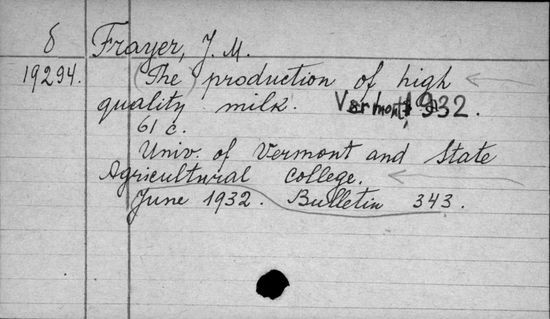 δ Frayer, J. M.
19294. (The) production of high
quality milk. Vermont, 1932.
61 c.
Univ. of Vermont and State
Agricultural College.
June 1932. Bulletin 343.